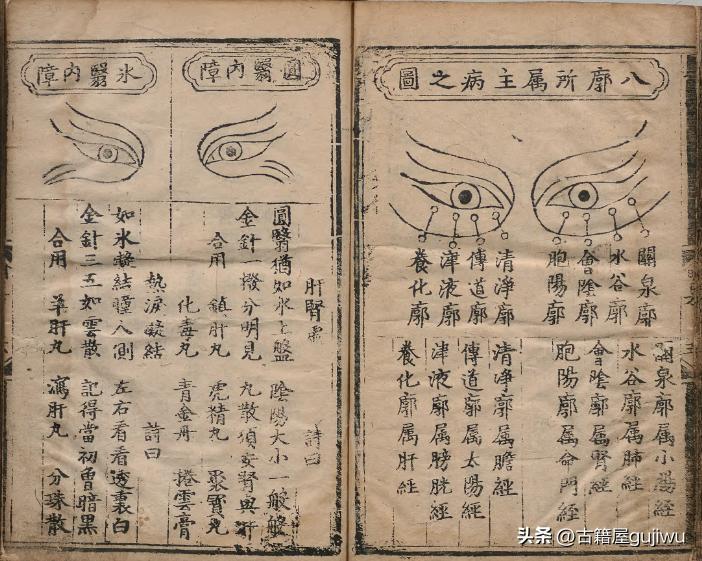 八廓所属主病之圖
關泉廓
水谷廓
會陰廓
胞陽廓
清淨廓
傳道廓
津液廓
養化廓
關泉廓属小腸經
水谷廓属肺經
會陰廓属腎經
胞陽廓属命門經
清淨廓属膽經
傳道廓属太腸經
津液廓属膀胱經
養化廓属肝經
圓翳内障
肝腎虛 詩曰
圓翳猶如氷上盤 陰陽大小一般盤
金針一撥分明見 丸散須交腎與肝
合用 鎮肝丸 虎精丸 聚寶丸
化毒丸 青金丹 捲雲膏
氷翳内障
熱淚凝結 詩曰
如氷凝結瞳人側 左右看看透裏白
金針三五如雲散 記得當初曾暗黑
合用 羊肝丸 瀉肝丸 分珠散
头条 @古籍屋gujiwu